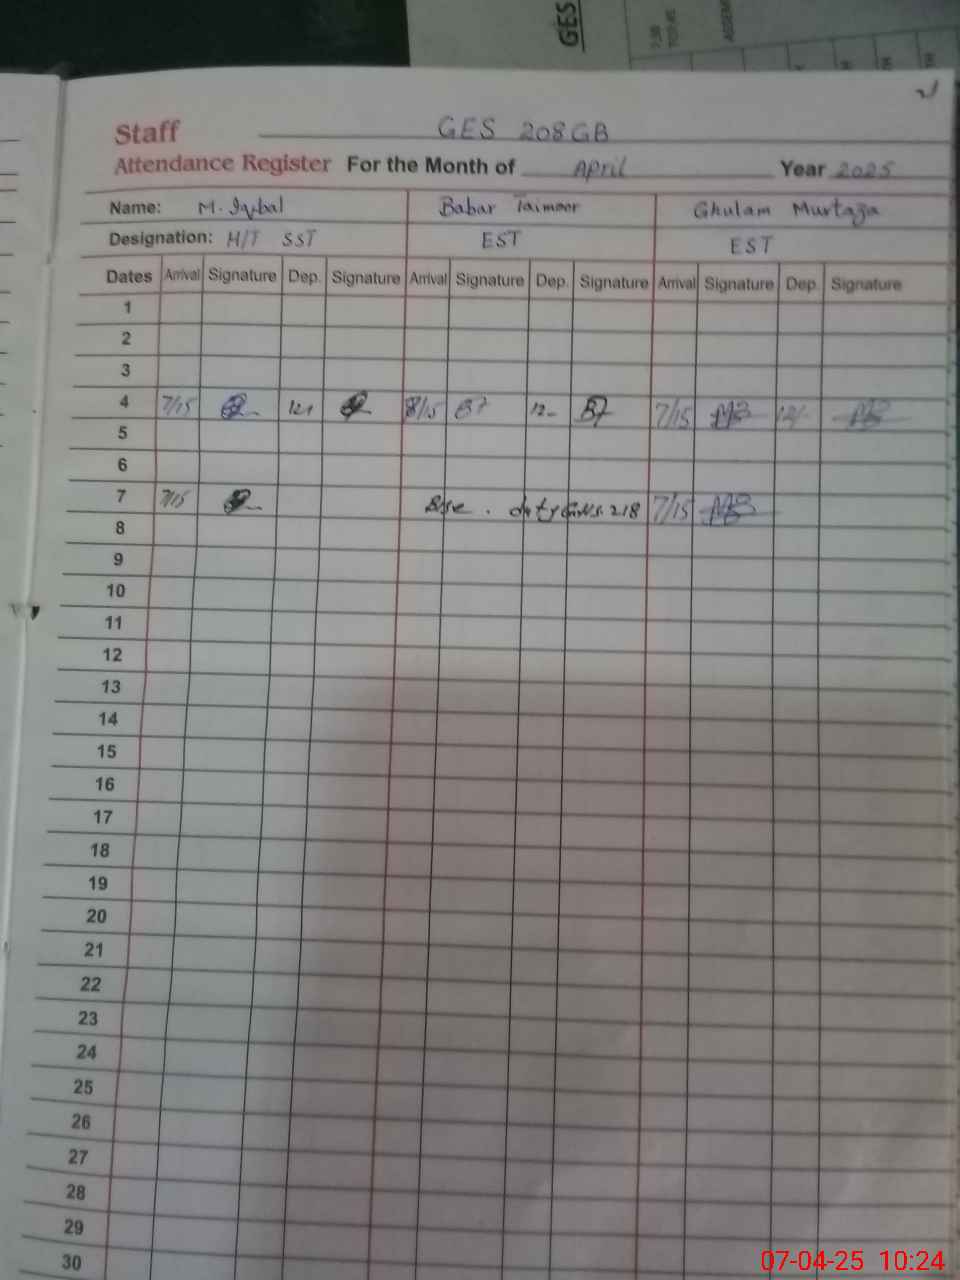 GES
7:30
GES 208 GB
Staff
Attendance Register For the Month of April Year 2025
Name: M. Iqbal Babar Taimoor Ghulam Murtaza
Designation: H/T SST EST EST
Dates Arrival Signature Dep. Signature Arrival Signature Dep. Signature Arrival Signature Dep. Signature
1
2
3
4 7/15 8/15 BT 12- BT 7/15
5
6
7 7/15 duty 218 7/15
8
9
10
11
12
13
14
15
16
17
18
19
20
21
22
23
24
25
26
27
28
29
30
07-04-25 10:24